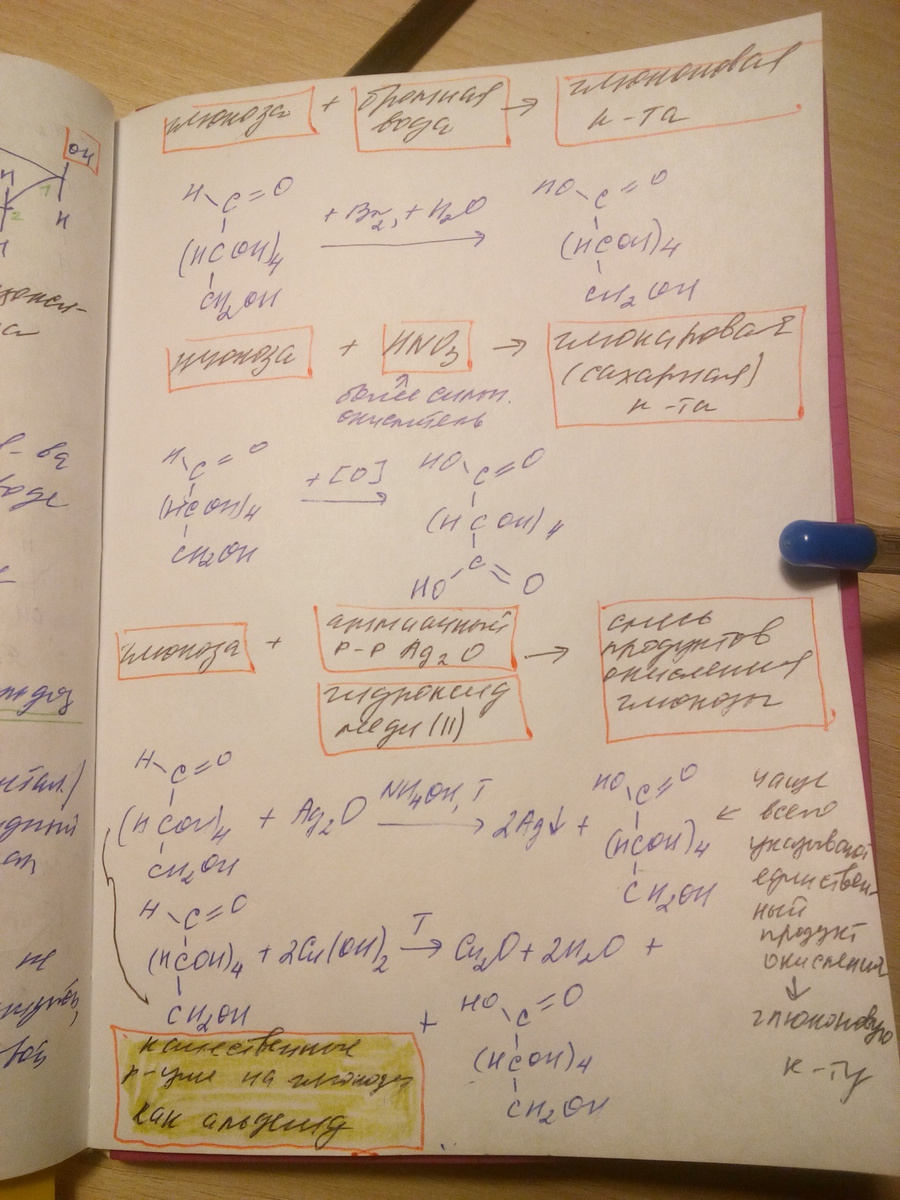 глюкоза + бромная вода → глюконовая к-та
H C = O
+ Br2, + H2O
HO C = O
(HCOH)4
(HCOH)4
CH2OH
CH2OH
глюкоза + HNO3 → глюкаровая (сахарная) к-та
более сильн.
окислитель
H C = O
+ [O]
HO C = O
(HCOH)4
(HCOH)4
CH2OH
HO C = O
глюкоза + аммиачный р-р Ag2O → смесь продуктов окисления глюкозы
гидроксид
меди (II)
H C = O
HO C = O
(HCOH)4 + Ag2O NH4OH, T → 2Ag↓ + (HCOH)4
CH2OH
CH2OH
чаще
всего
указывают
единствен-
ный
продукт
окисления
↓
глюконовую
к-ту
H C = O
(HCOH)4 + 2Cu(OH)2 T → Cu2O + 2H2O +
CH2OH
+ HO C = O
(HCOH)4
CH2OH
качественные
р-ции на глюкозу
как альдегид
OH
H
H
1
2
в-ва
воде
не